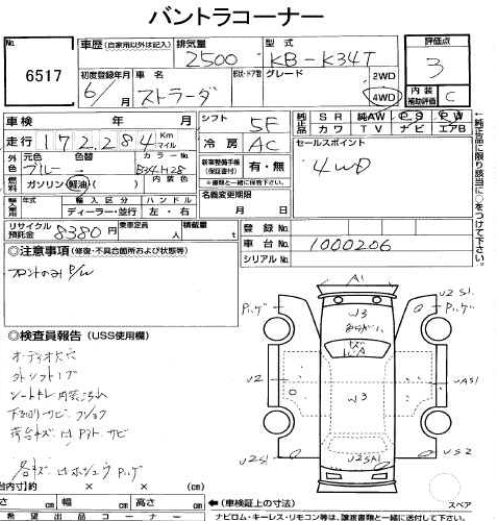 バントラコーナー
No. 6517
車歴 (自家用以外は記入) 排気量 2500 型式 KB-K34T 評価点 3
初度登録年月 6/ 月 車名 ストラーダ 形状・ドア数 グレード 2WD 4WD 内装補助評価 C
車検 年 月 シフト 5F 純正品 SR 純AW PS PW
カワ TV ナビ エアB
走行 172,284 Km マイル 冷房 AC セールスポイント
4WD
外色 元色 ブルー 色替 カラーNo. B34H28
燃料 ガソリン 軽油 ( ) 内装色
新車整備手帳 (保証書付) 有・無
※書類と一緒に保管下さい。
輸入車 年式 輸入区分 ディーラー・並行 ハンドル 左・右 名義変更期限 月 日
リサイクル預託金 8380円 乗車定員 人 積載量 t
登録No.
車台No. 1000206
シリアルNo.
↑純正品に限り該当に○をつけて下さい。
◎注意事項 (修復・不具合箇所および状態等)
フロントのみP/W
◎検査員報告 (USS使用欄)
オーディオ穴
シートキレ 内装こげ
下廻りサビ
荷台キズ 凹 サビ
各キズ 凹 ホシュウ
A1
U2 S1
W3
U2
W3
UAS1
U2S1
U2SA1
US2
スペア
台内寸) 約 × × (cm)
さ cm 幅 cm 高さ cm ←(車検証上の寸法)
希望出品コーナー ナビロム・キーレス・リモコン等は、譲渡書類と一緒に送付して下さい。